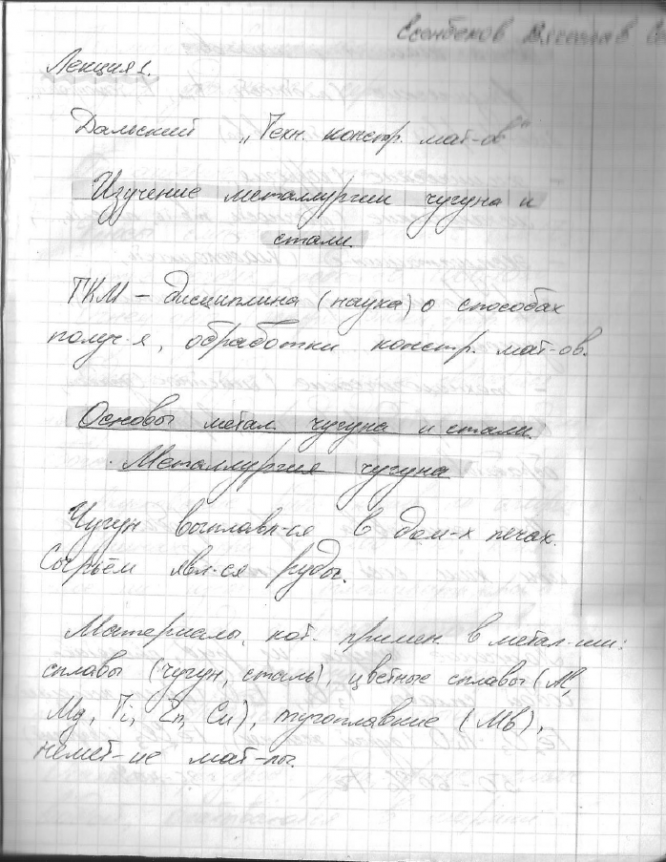 Лекция 1.
Дальский „Техн. констр. мат-ов"
Изучение металлургии чугуна и
стали.
ТКМ – дисциплина (наука) о способах
получ-я, обработки констр. мат-ов.
Основы метал. чугуна и стали.
Металлургия чугуна
Чугун выплавл-ся в дом-х печах.
Сырьём явл-ся руды.
Материалы, кот. примен. в метал-ии:
сплавы (чугун, сталь), цветные сплавы (Al,
Mg, Ti, Zn, Cu), тугоплавкие (Mb),
немет-ие мат-лы.